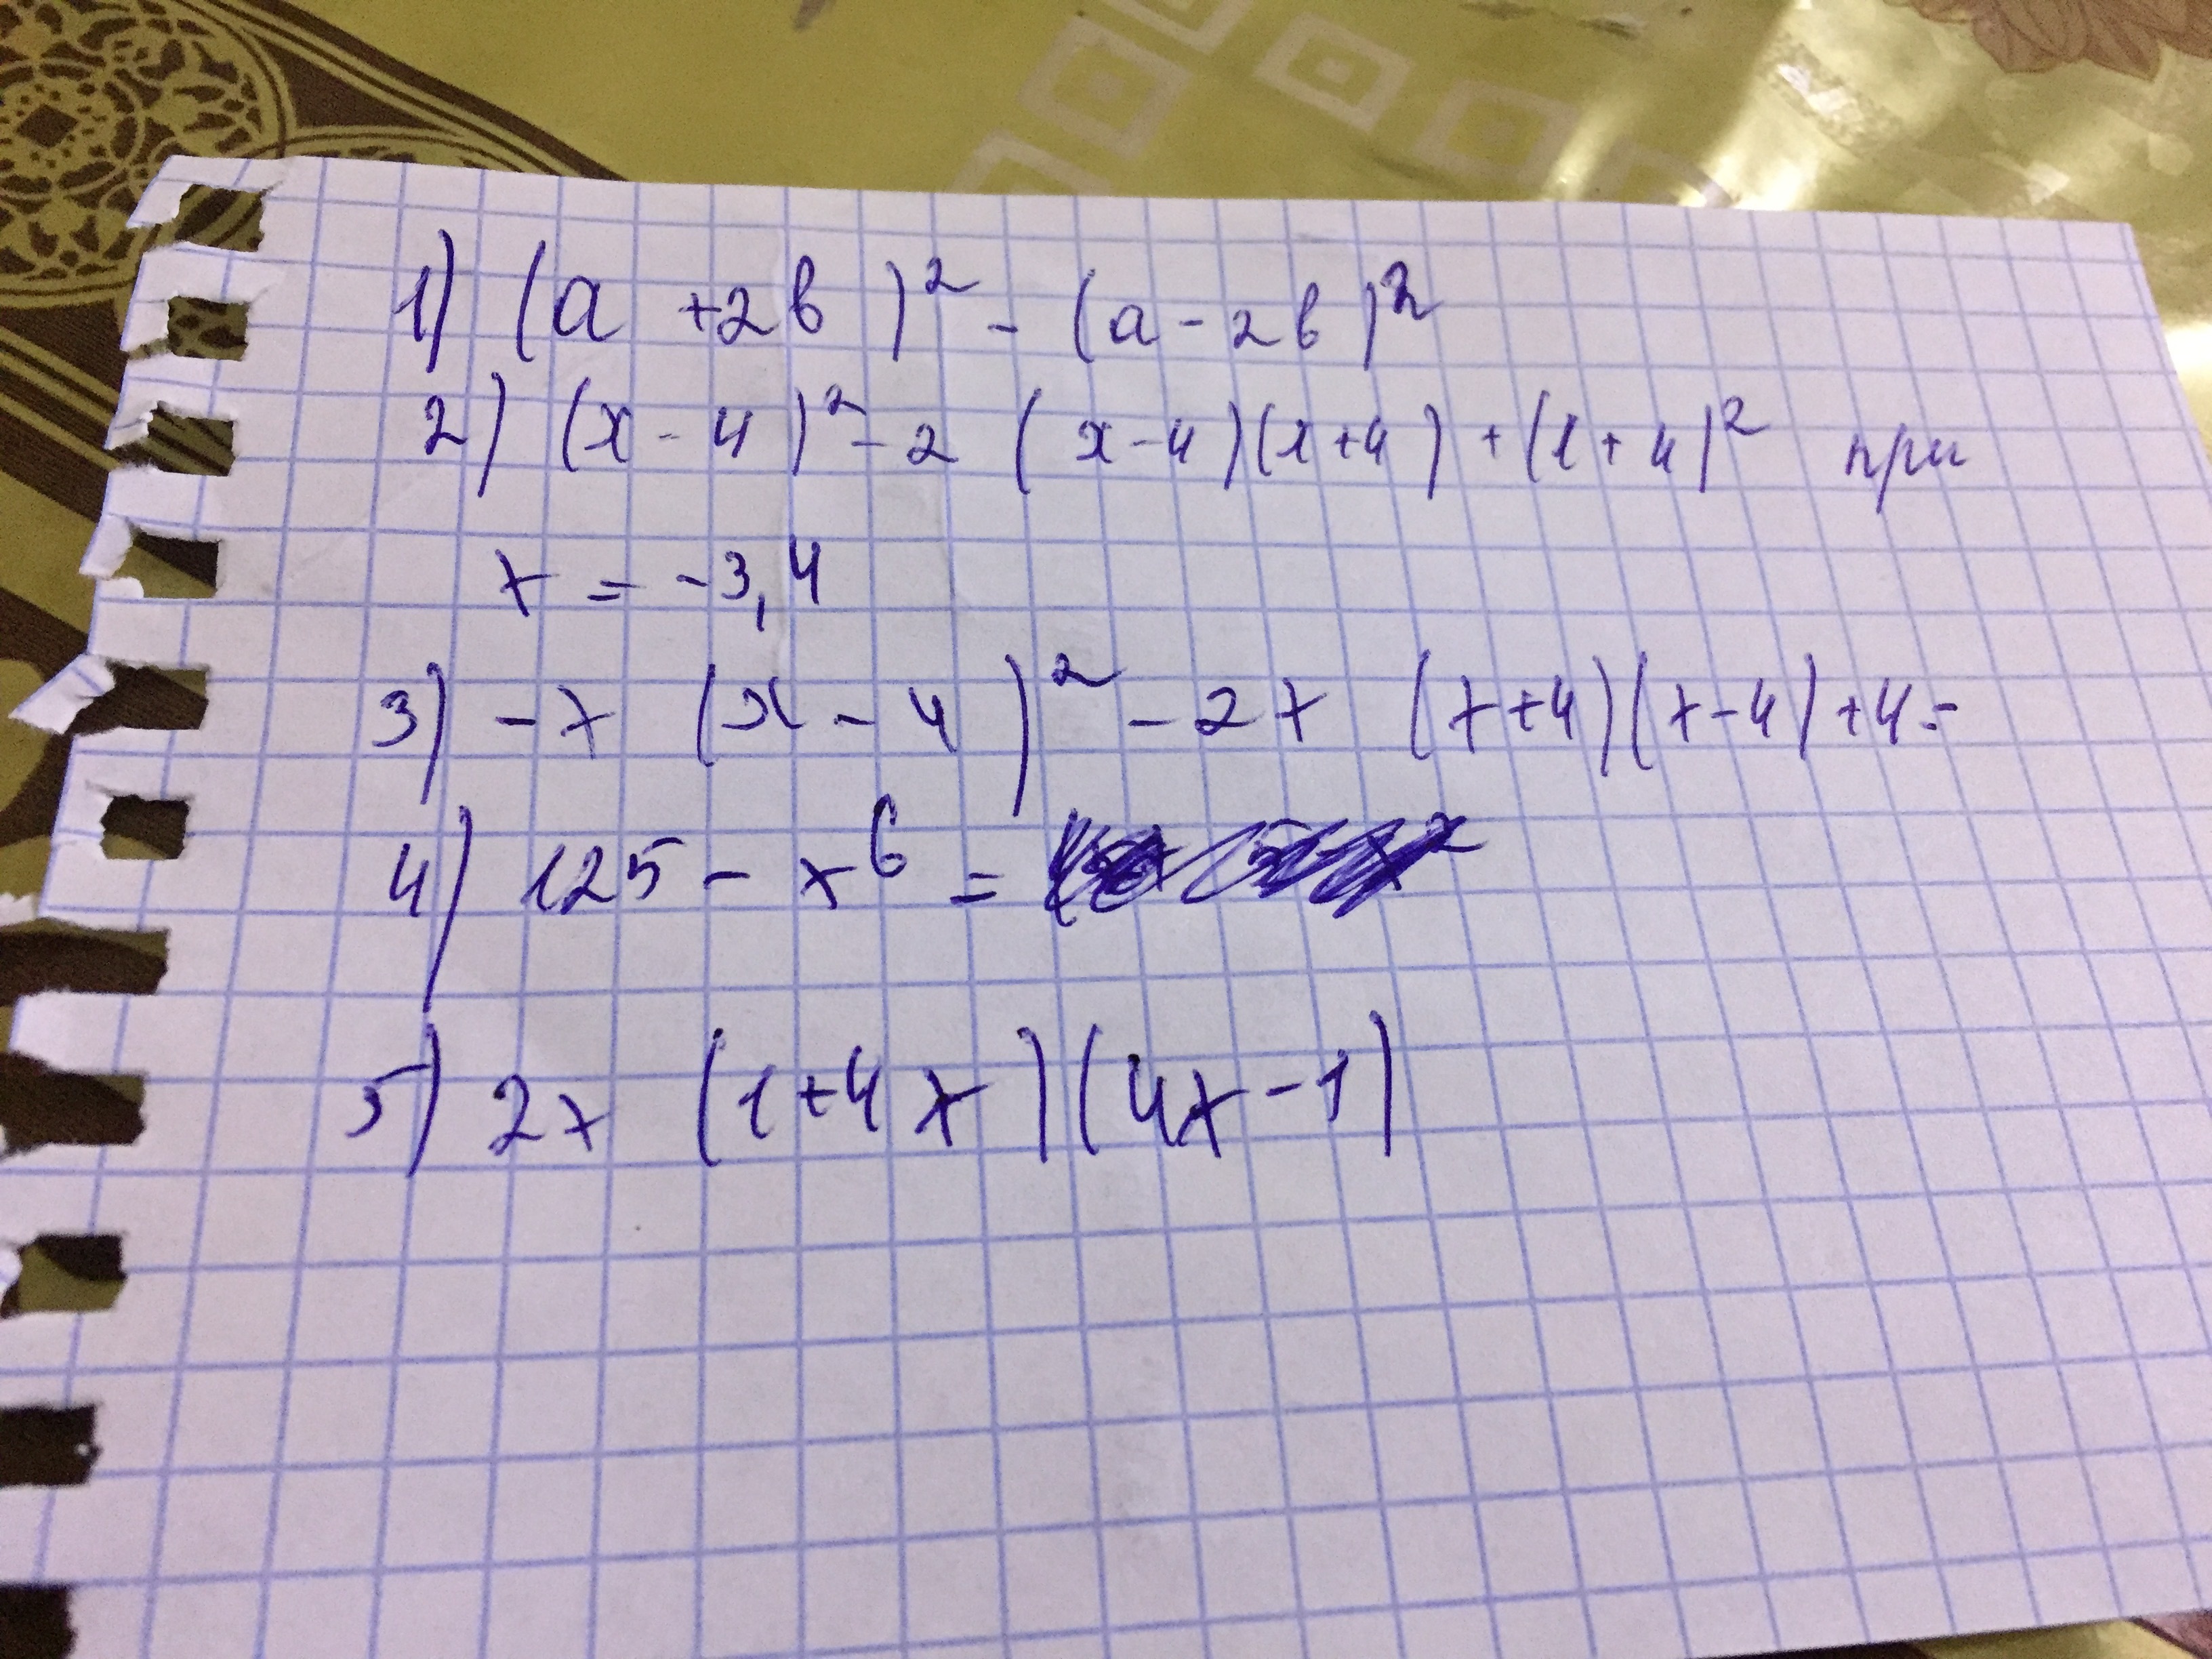 1) (a +2b)² - (a - 2b)²
2) (x - 4)² - 2 (x - 4)(x + 4) + (x + 4)² при
x = -3,4
3) -x (x - 4)² - 2x (x + 4)(x - 4) + 4 =
4) 125 - x⁶ =
5) 2x (1 + 4x)(4x - 1)